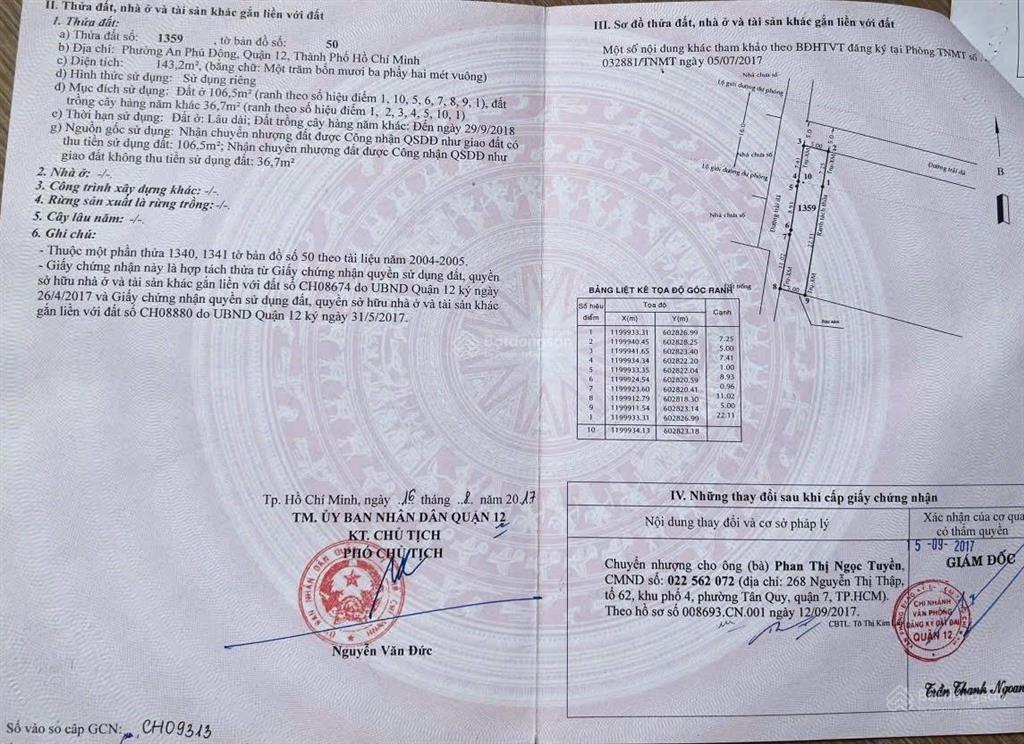 II. Thửa đất, nhà ở và tài sản khác gắn liền với đất
1. Thửa đất:
a) Thửa đất số: 1359 , tờ bản đồ số: 50
b) Địa chỉ: Phường An Phú Đông, Quận 12, Thành Phố Hồ Chí Minh
c) Diện tích: 143,2m², (bằng chữ: Một trăm bốn mươi ba phẩy hai mét vuông)
d) Hình thức sử dụng: Sử dụng riêng
đ) Mục đích sử dụng: Đất ở 106,5m² (ranh theo số hiệu điểm 1, 10, 5, 6, 7, 8, 9, 1), đất
trồng cây hàng năm khác 36,7m² (ranh theo số hiệu điểm 1, 2, 3, 4, 5, 10, 1)
e) Thời hạn sử dụng: Đất ở: Lâu dài; Đất trồng cây hàng năm khác: Đến ngày 29/9/2018
g) Nguồn gốc sử dụng: Nhận chuyển nhượng đất được Công nhận QSDĐ như giao đất có
thu tiền sử dụng đất: 106,5m²; Nhận chuyển nhượng đất được Công nhận QSDĐ như
giao đất không thu tiền sử dụng đất: 36,7m²
2. Nhà ở: -/-.
3. Công trình xây dựng khác: -/-.
4. Rừng sản xuất là rừng trồng: -/-.
5. Cây lâu năm: -/-.
6. Ghi chú:
- Thuộc một phần thửa 1340, 1341 tờ bản đồ số 50 theo tài liệu năm 2004-2005.
- Giấy chứng nhận này là hợp tách thửa từ Giấy chứng nhận quyền sử dụng đất, quyền
sở hữu nhà ở và tài sản khác gắn liền với đất số CH08674 do UBND Quận 12 ký ngày
26/4/2017 và Giấy chứng nhận quyền sử dụng đất, quyền sở hữu nhà ở và tài sản khác
gắn liền với đất số CH08880 do UBND Quận 12 ký ngày 31/5/2017.
Tp. Hồ Chí Minh, ngày 16 tháng 8 năm 2017
TM. ỦY BAN NHÂN DÂN QUẬN 12
KT. CHỦ TỊCH
PHÓ CHỦ TỊCH
Nguyễn Văn Đức
Số vào sổ cấp GCN: CH09313
III. Sơ đồ thửa đất, nhà ở và tài sản khác gắn liền với đất
Một số nội dung khác tham khảo theo BĐHTVT đăng ký tại Phòng TNMT số
032881/TNMT ngày 05/07/2017
Nhà chưa số
Lộ giới đường dự phóng
16.0
5.0
5.0
Nhà chưa số
Lộ giới đường dự phóng
Đường trải đá
B
3
5.00
4
10
1
5
1359
Nhà chưa số
Đường trải đá
8.93
22.11
Ranh tách thửa
6
7
11.02
Trụ-XM
8
9
BẢNG LIỆT KÊ TỌA ĐỘ GÓC RANH
Số hiệu điểm Tọa độ Cạnh
X(m) Y(m)
1 1199933.31 602826.99
7.25
2 1199940.45 602828.25
5.00
3 1199941.65 602823.40
7.41
4 1199934.34 602822.20
1.00
5 1199933.35 602822.04
8.93
6 1199924.54 602820.59
0.96
7 1199923.60 602820.41
11.02
8 1199912.79 602818.30
5.00
9 1199911.54 602823.14
22.11
1 1199933.31 602826.99
10 1199934.13 602823.18
IV. Những thay đổi sau khi cấp giấy chứng nhận
Nội dung thay đổi và cơ sở pháp lý
Xác nhận của cơ qua
có thẩm quyền
Chuyển nhượng cho ông (bà) Phan Thị Ngọc Tuyền,
CMND số: 022 562 072 (địa chỉ: 268 Nguyễn Thị Thập,
tổ 62, khu phố 4, phường Tân Quy, quận 7, TP.HCM).
Theo hồ sơ số 008693.CN.001 ngày 12/09/2017.
CBTL: Tô Thị Kim
5 -09- 2017
GIÁM ĐỐC
CHI NHÁNH
VĂN PHÒNG
ĐĂNG KÝ ĐẤT ĐAI
QUẬN 12
Trần Thanh Ngoan
Batdongsan